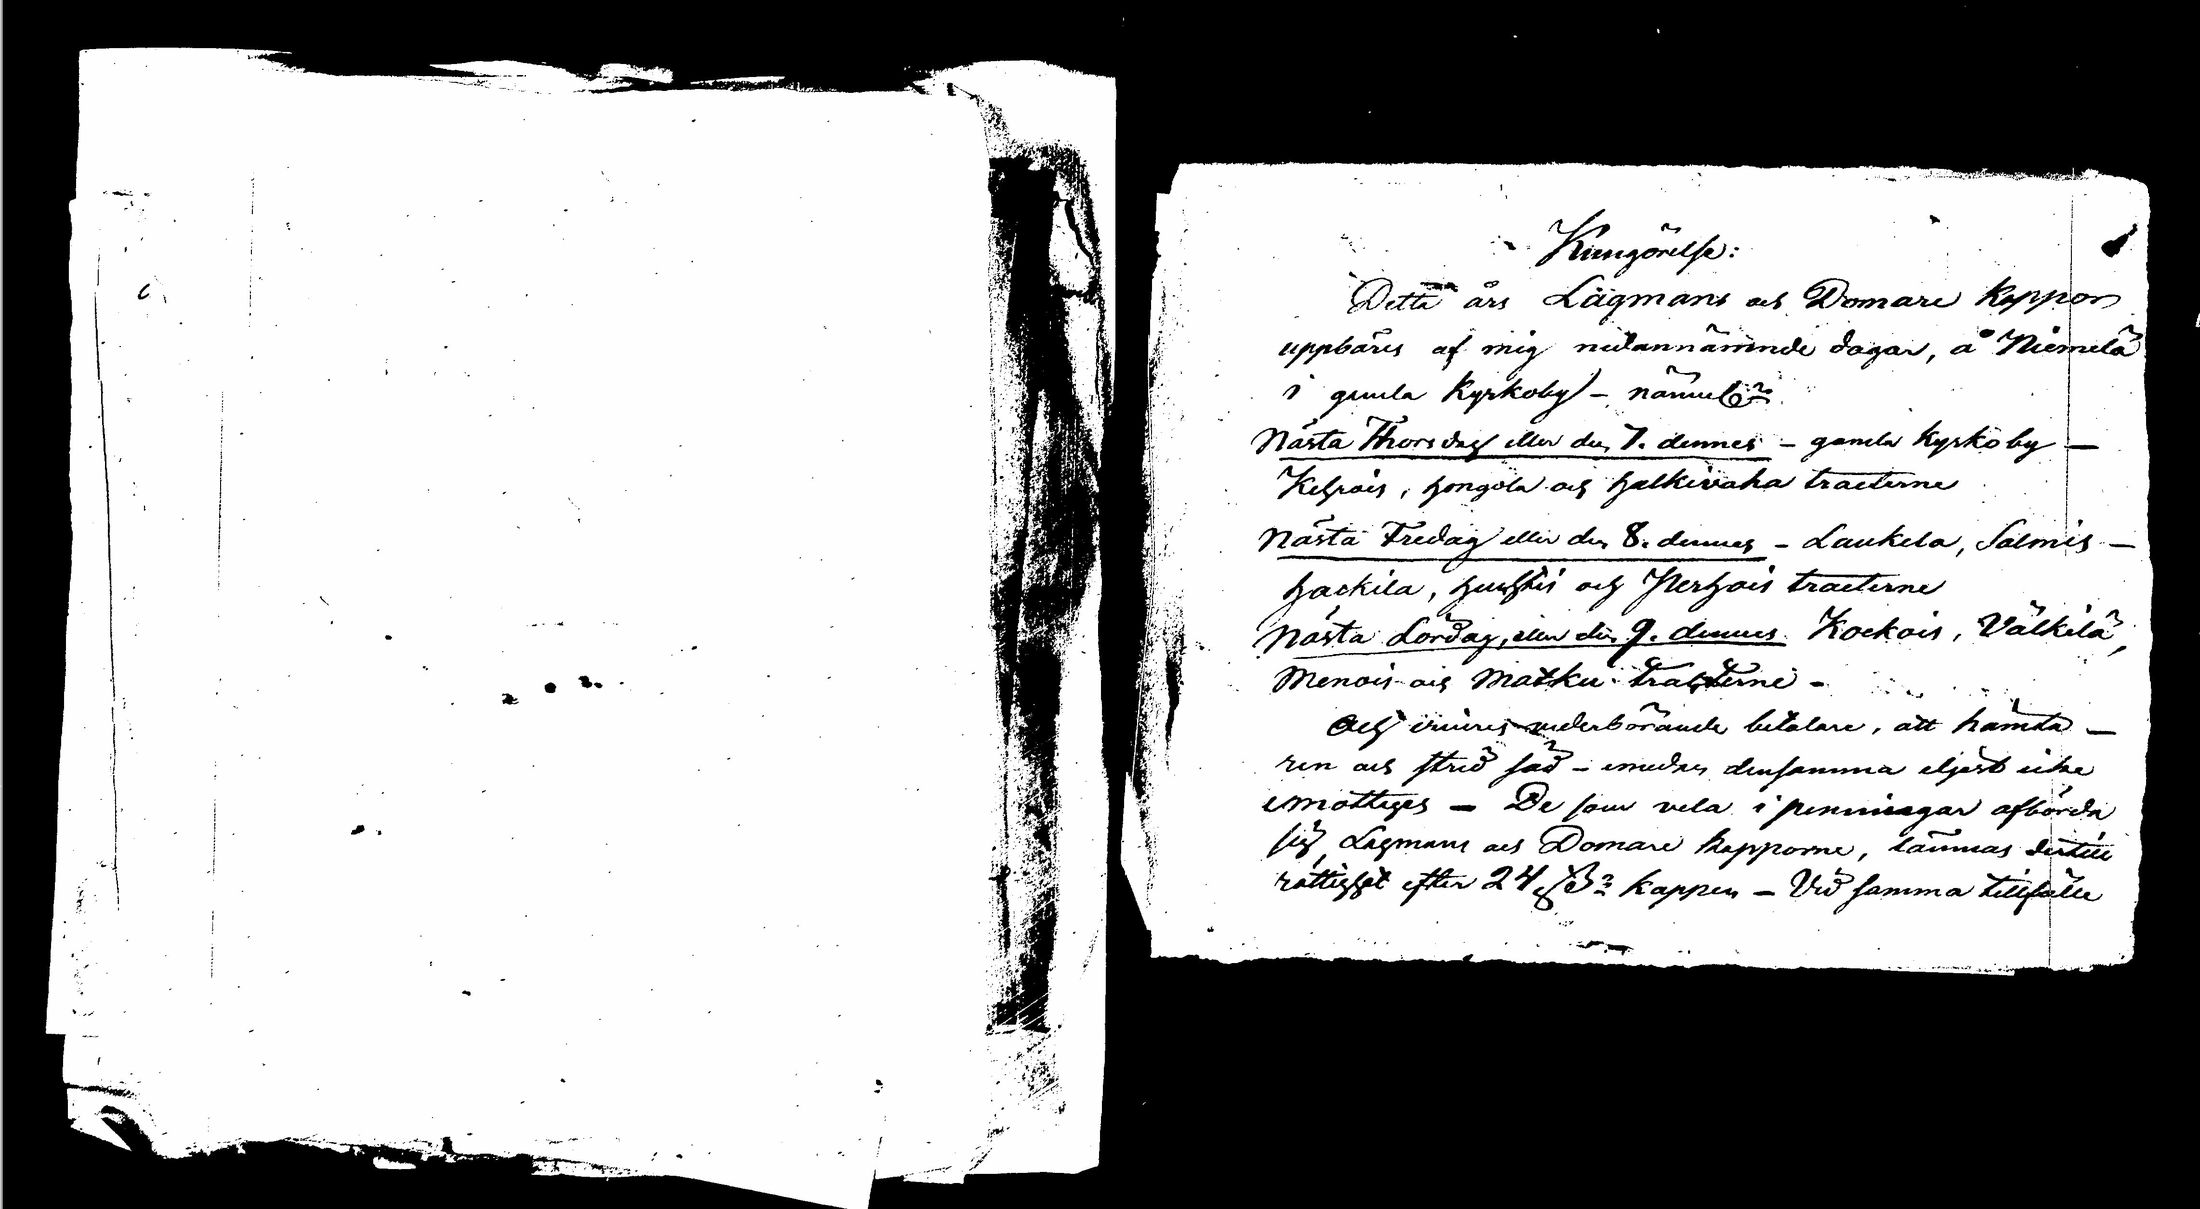 Kungörelse:
Detta års Lagmans och Domare Kappor
uppbäres af mig nedannämnde dagar, å Niemelä
i gamla Kyrkoby – nämel:n
Nästa Thorsdag eller den 7. dennes – gamla Kyrkoby –
Kehrois, Hongola och Halkivaha tracterne
Nästa Fredag eller den 8. dennes – Laukela, Salmis –
Hackila, och Nerhois tracterne
Nästa Lördag, eller den 9. dennes Kockois, Välkilä,
Menois och Matku tracterne –
Och vederbörande betalare, att hämta –
ren och strid säd – emedan densamma eljest icke
emottages – De som vela i penningar afbörda
sig Lagmans och Domare kapporne, lämnas dertill
rättighet efter 24 kappen – Vid samma tillfälle